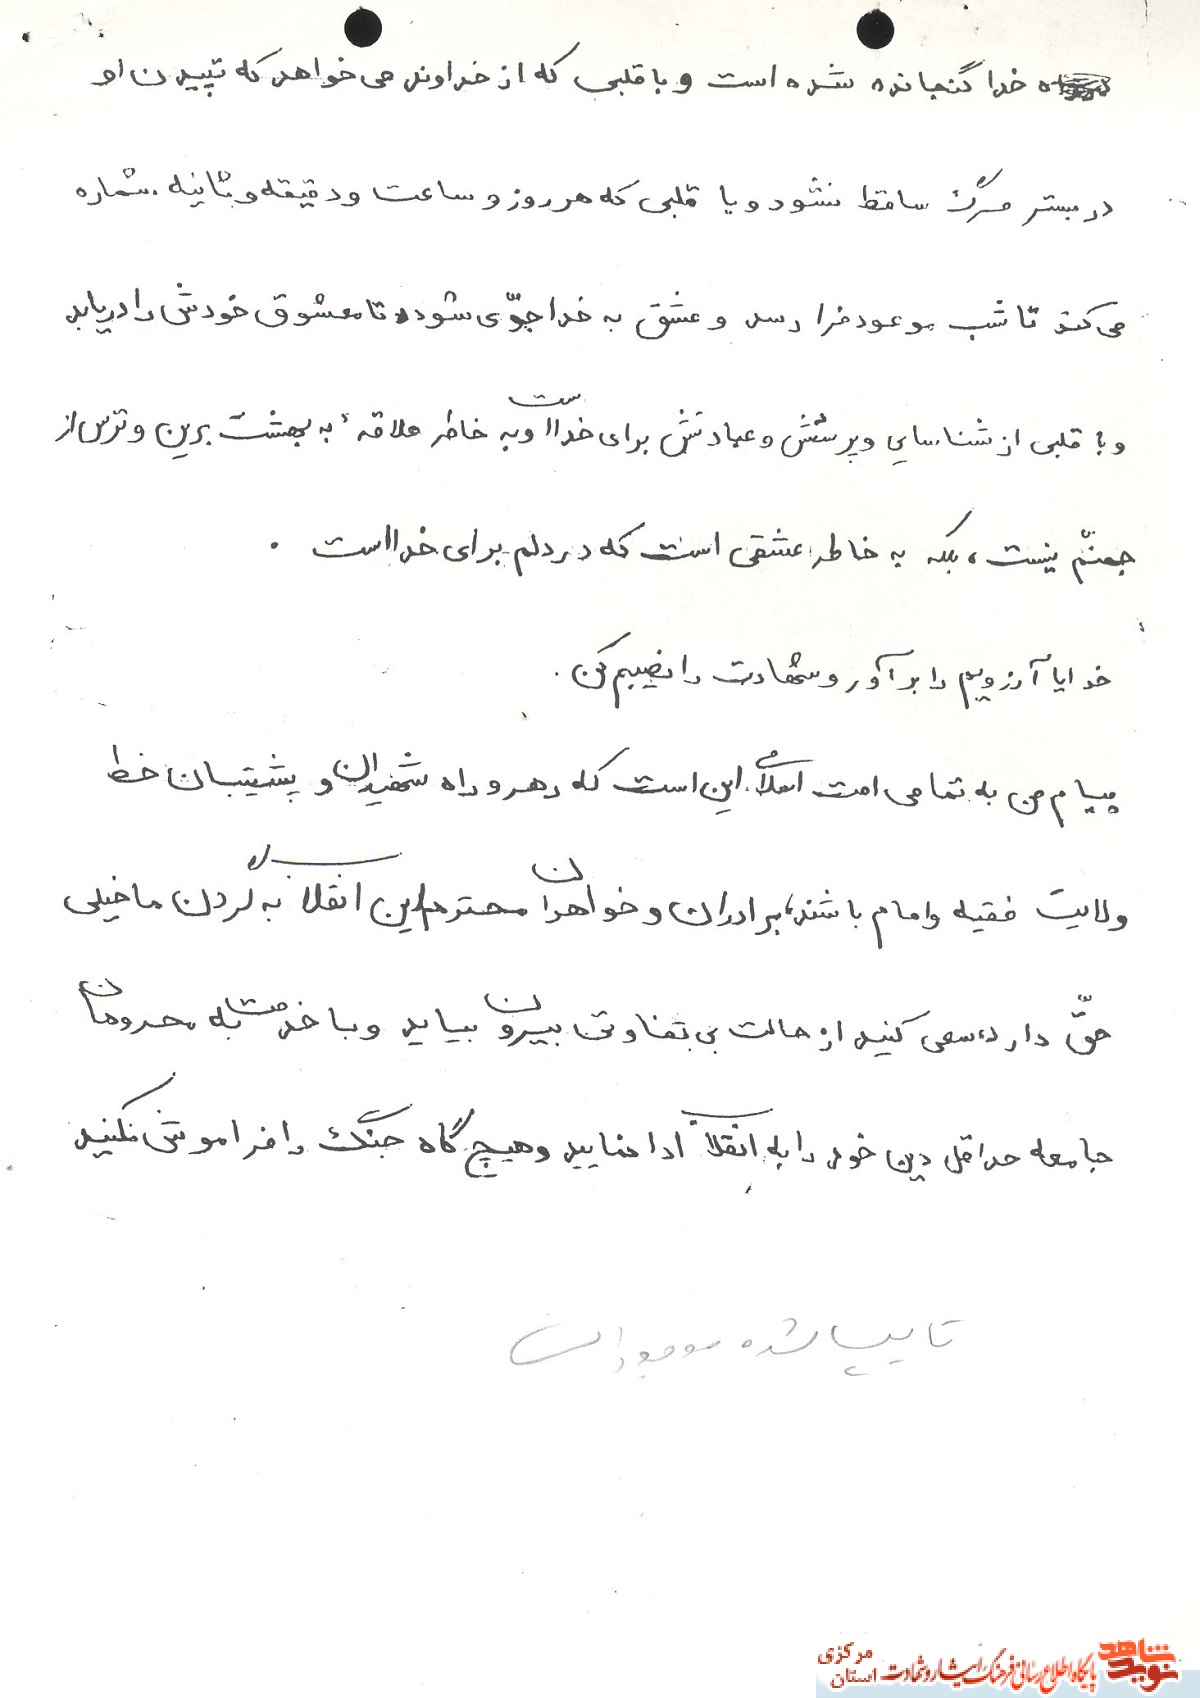 خدا گنجانده شده است و با قلبی که از خداوند می خواهد که تپیدن او
در بستر مرگ ساقط نشود و یا قلبی که هر روز و ساعت و دقیقه و ثانیه شماره
می کند تا شب موعود فرا رسد و عشق به خدا جوّی شود تا معشوق خودش را دریابد
و با قلبی از شناسایی و پرستش و عبادتش برای خداست و به خاطر علاقه ٔ به بهشت برین و ترس از
جهنّم نیست ، بلکه به خاطر عشقی است که در دلم برای خدا است .
خدایا آرزویم را برآور و شهادت را نصیبم کن .
پیام من به تمامی امت اسلامی این است که رهرو راه شهیدان و پشتیبان خط
ولایت فقیه و امام باشند، برادران و خواهران محترم این انقلاب به گردن ما خیلی
حقّ دارد، سعی کنید از حالت بی تفاوتی بیرون بیاید و با خدمت به محرومان
جامعه حداقل دین خود را به انقلاب ادا نمایید و هیچ گاه جنگ را فراموش نکنید
تایپ شده موجود است
نوید شاهد
پایگاه اطلاع رسانی فرهنگ ایثار و شهادت استان مرکزی